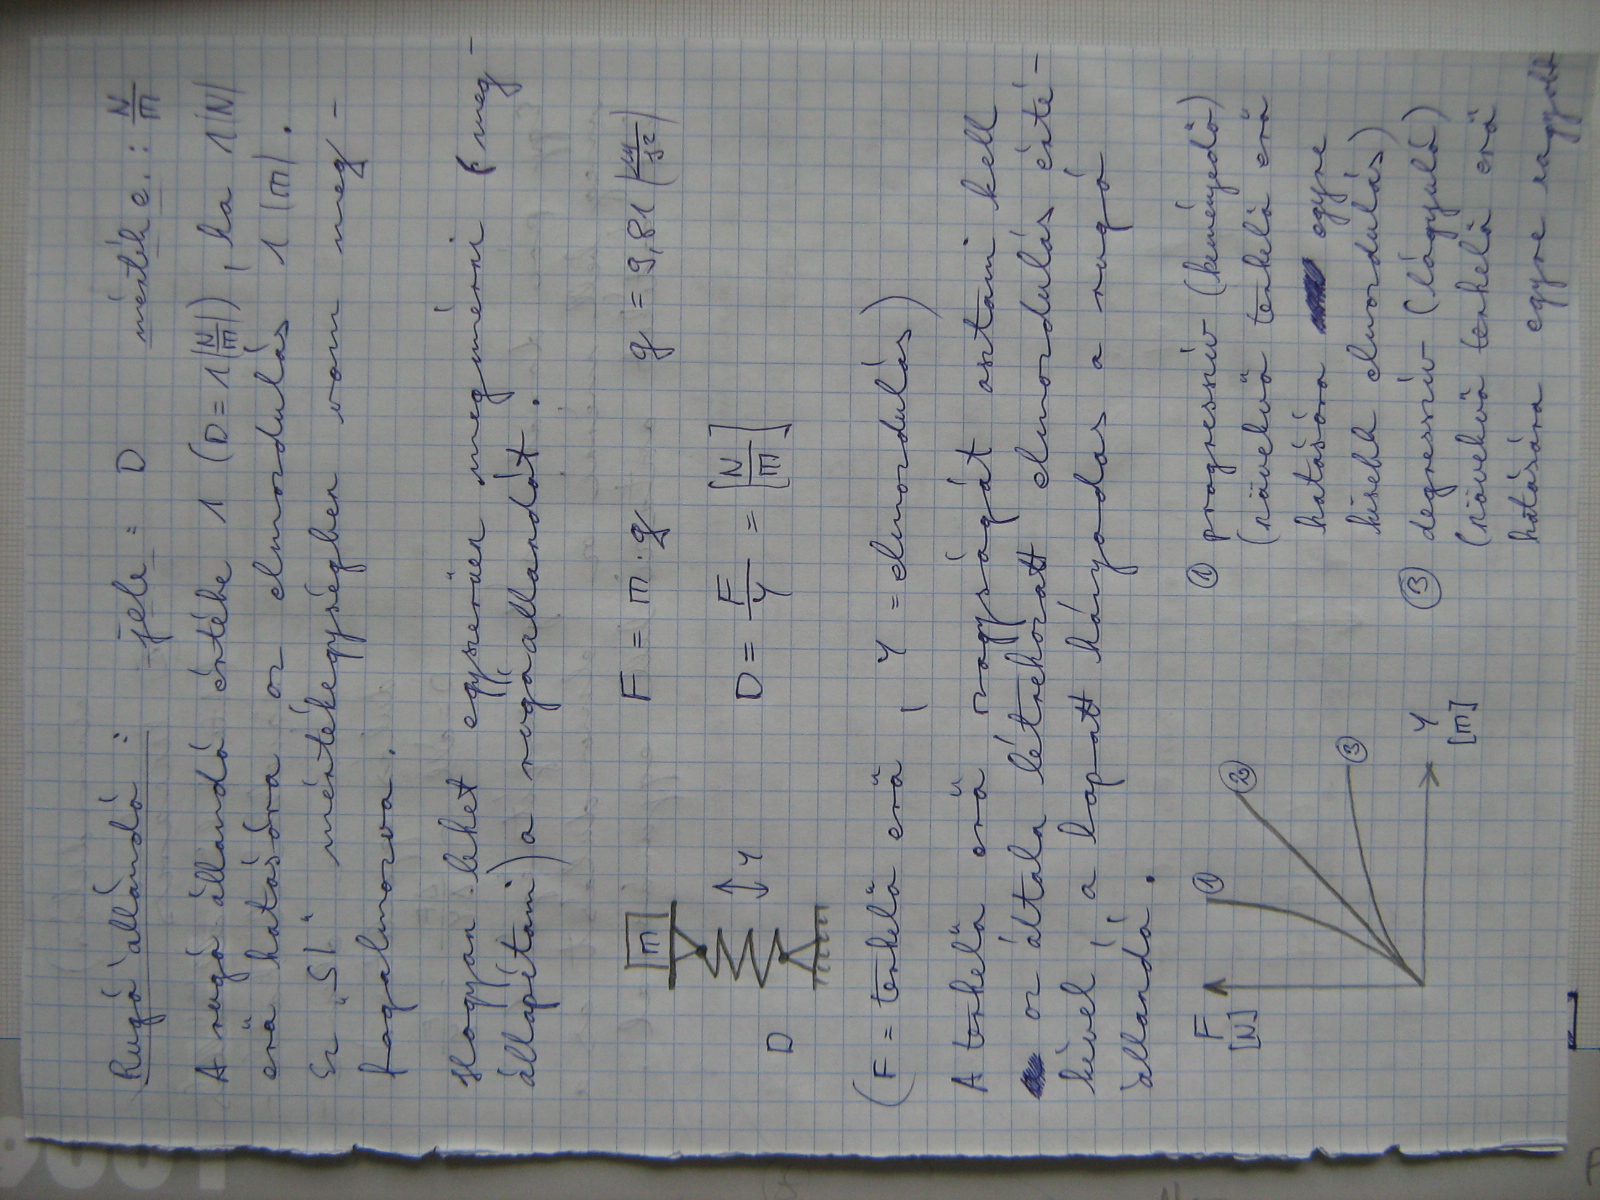 Rugó állandó: jele: D mértéke: N/m
A rugó állandó értéke 1 (D=1|N/m|), ha 1|N|
erő hatására az elmozdulás 1 |m|.
Ez "SI" mértékegységben van meg-
fogalmazva.
Hogyan lehet egyszerűen megmérni (meg-
állapítani) a rugóállandót.
m
F = m·g g = 9,81 |m/s²|
D Y
D = F/Y = [N/m]
(F = terhelő erő, Y = elmozdulás)
A terhelő erő nagyságát osztani kell
az általa létrehozott elmozdulás érté-
kével, a kapott hányados a rugó
állandó.
F [N]
① ② ③
Y [m]
① progresszív (keményedő)
(növekvő terhelő erő
hatására egyre
kisebb elmozdulás)
③ degresszív (lágyuló)
(növekvő terhelő erő
hatására egyre nagyobb